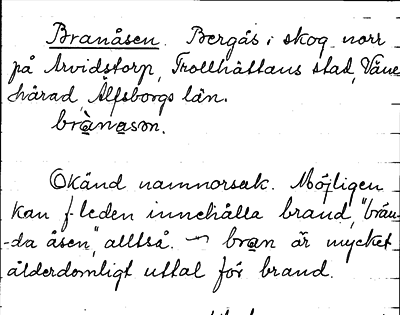 Branåsen. Bergås i skog norr
på Arvidstorp, Trollhättans stad, Väne
härad, Älfsborgs län.
brànasən.
Okänd namnorsak. Möjligen
kan f-leden innehålla brand, "brän-
-da åsen", alltså. bran är mycket
ålderdomligt uttal för brand.